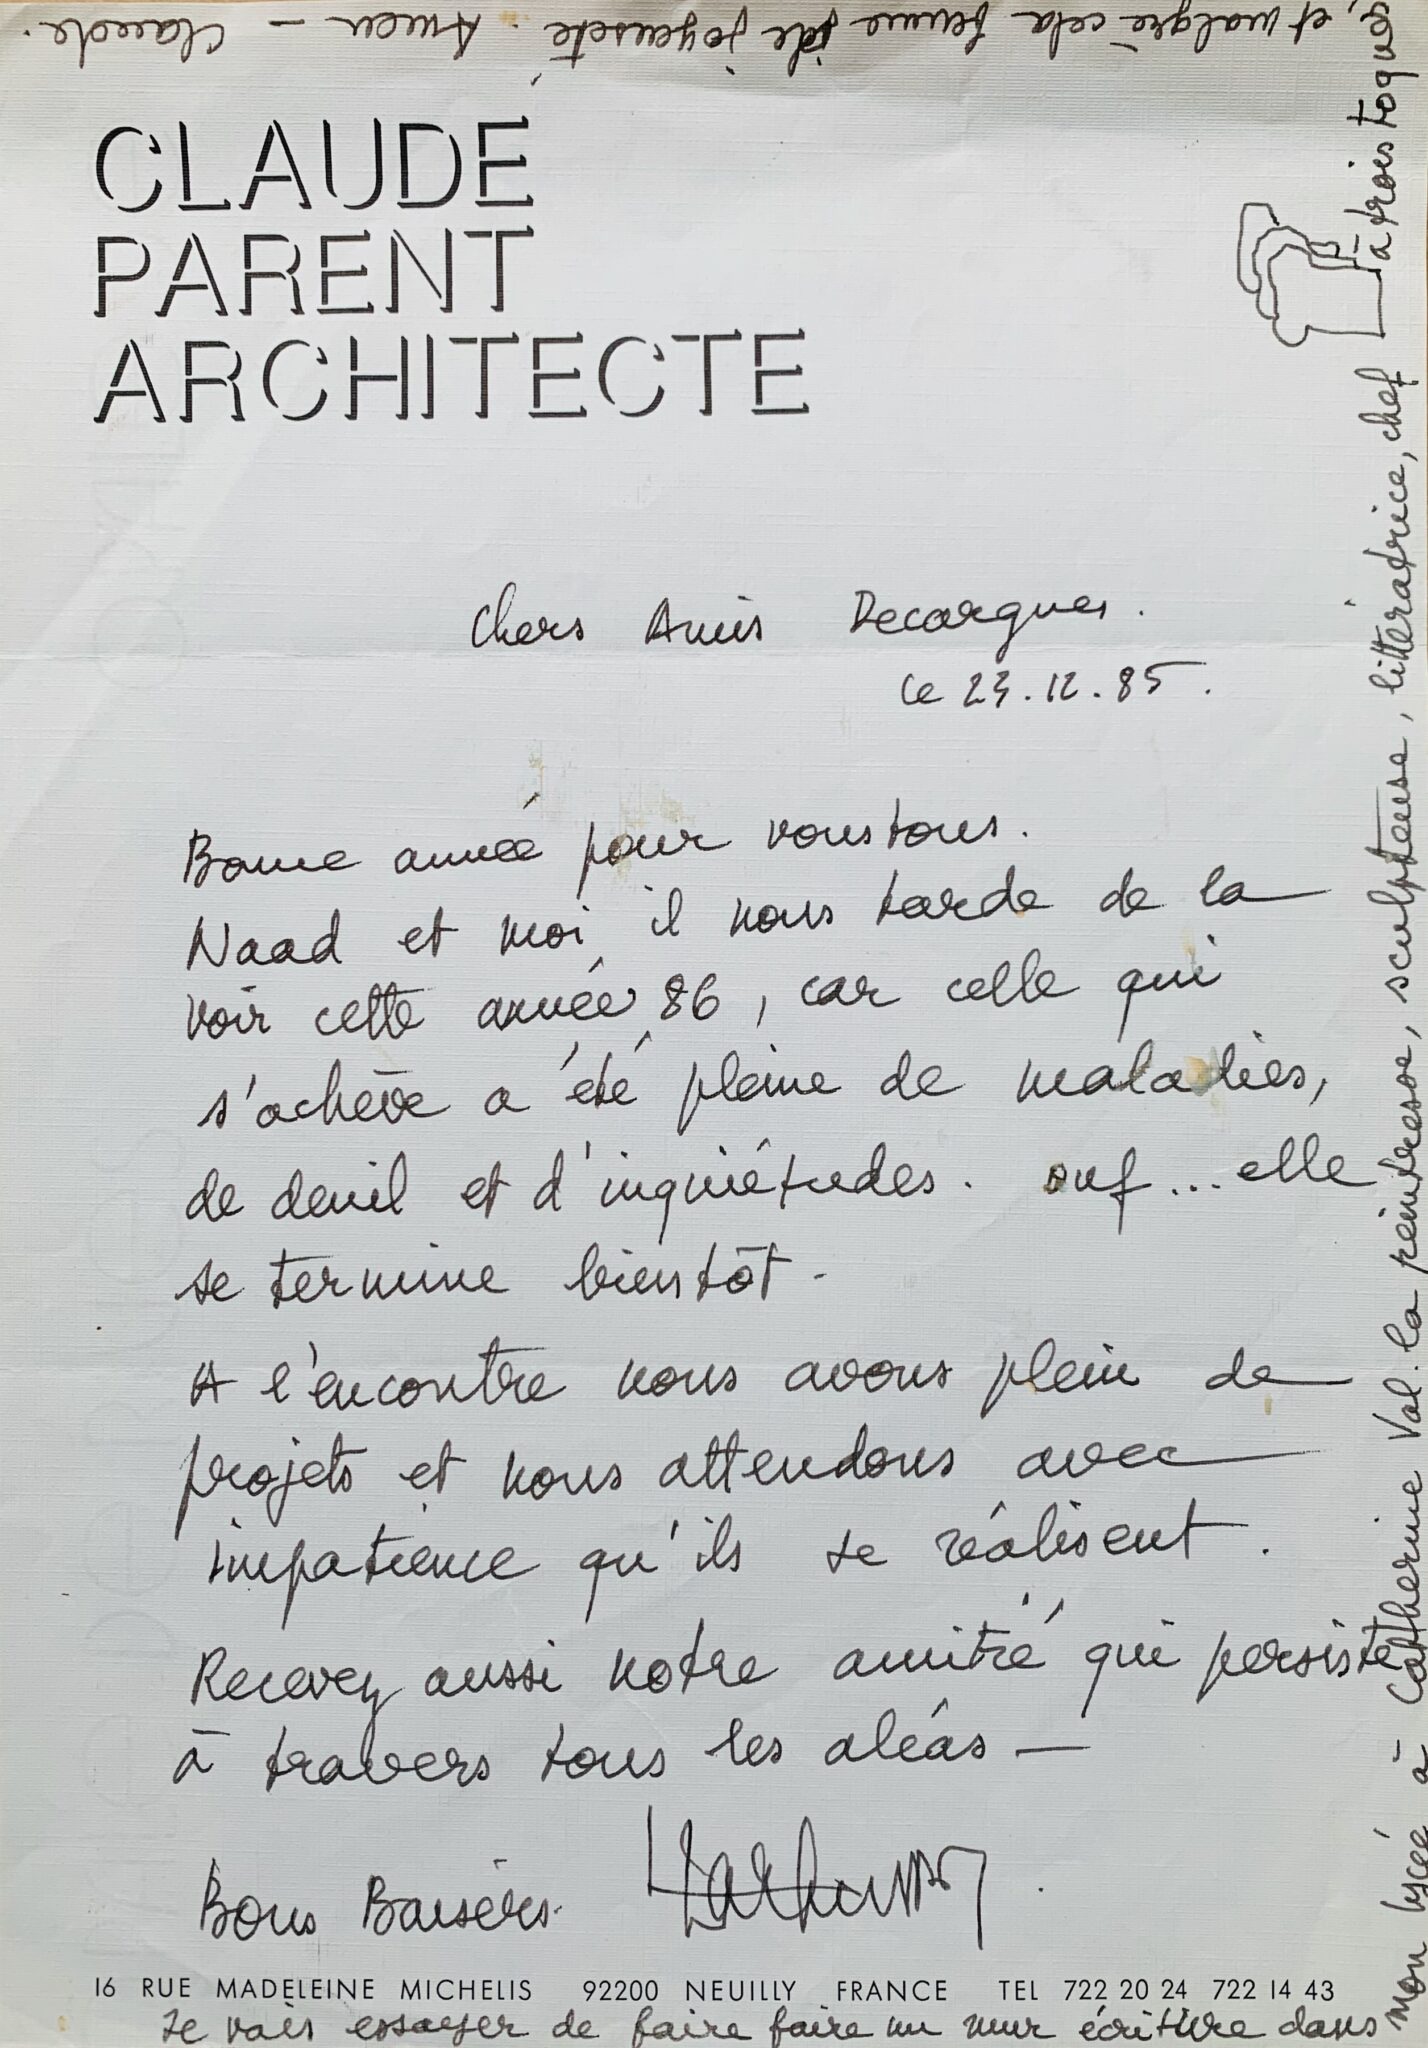 CLAUDE
PARENT
ARCHITECTE
Chers Amis Decargues.
ce 23.12.85.
Bonne année pour vous tous.
Naad et moi il nous tarde de la
voir cette année 86, car celle qui
s'achève a été pleine de maladies,
de deuil et d'inquiétudes. ouf... elle
se termine bientôt.
A l'encontre nous avons plein de
projets et nous attendons avec
impatience qu'ils se réalisent.
Recevez aussi notre amitié qui persiste
à travers tous les aléas —
Bons Baisers.
16 RUE MADELEINE MICHELIS 92200 NEUILLY FRANCE TEL 722 20 24 722 14 43
Je vais essayer de faire faire un mur écriture dans
mon lycée à - Catherine Val. la peintresse, sculpteuse, littératrice, chef à trois toques,
et malgré cela femme de joyeuseté. Amen - Claude.